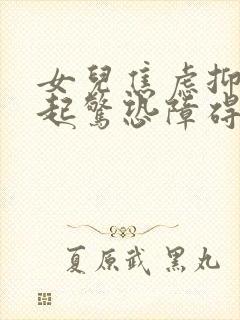 女兒焦慮抑
起驚恐障碍
夏原武 黑丸